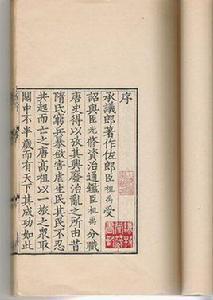 序
承議郎著作佐郎臣祖禹受
詔與臣光修資治通鑑臣祖禹分職
唐史得以攷其興廢治亂之所由昔
隋氏窮兵暴歛害虐生民其民不忍
共起而亡之唐高祖以一旅之衆取
關中不半歲而有天下其成功如此